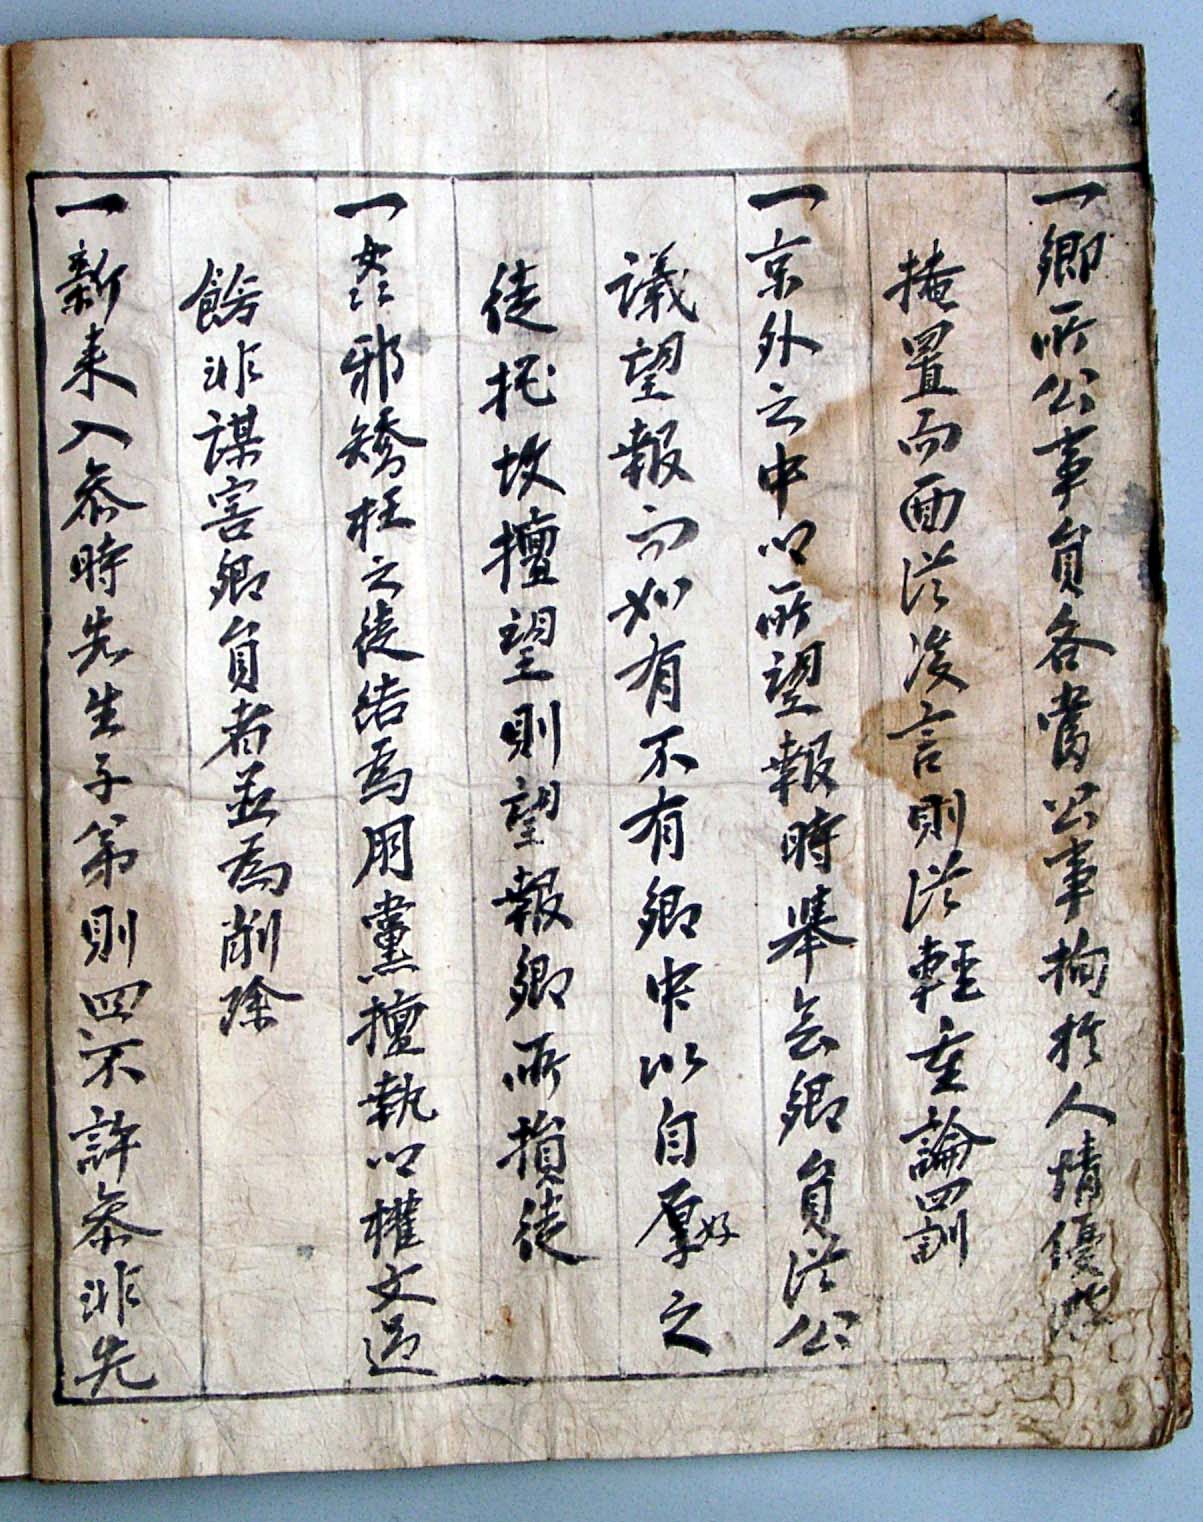 一鄕所公事員各當公事拘於人情優
掩置而面從後言則從輕重論罰
一京外之中以所望報時擧会鄕員從公
議望報而如有不有鄕中以自厚好之
徒托故擅望則望報鄕所損徒
一奸邪矯枉之徒結爲朋黨擅執以權文過
餙非謀害鄕員者並爲削除
一新来入叅時先生子弟則四不許叅非先